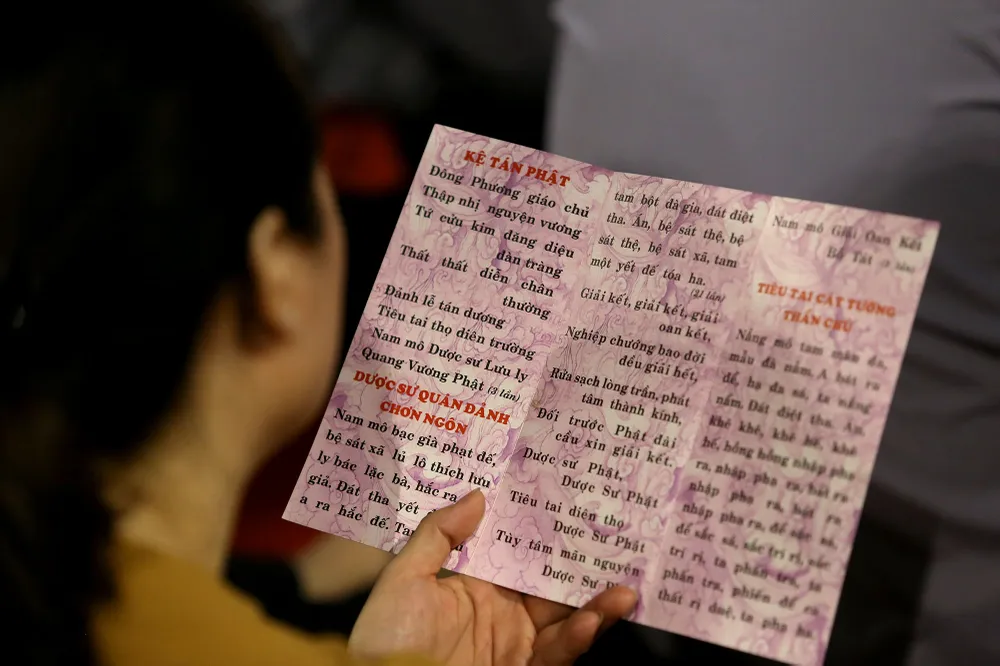 KỆ TÁN PHẬT
Đông Phương giáo chủ
Thập nhị nguyện vương
Tứ cửu kim đăng diệu
đàn tràng
Thất thất diễn chân
thường
Đảnh lễ tán dương
Tiêu tai thọ diên trường
Nam mô Dược sư Lưu ly
Quang Vương Phật (3 lần)
DƯỢC SƯ QUÁN ĐẢNH
CHƠN NGÔN
Nam mô bạc già phạt đế,
bệ sát xã lủ lô thích lưu
ly bác lặc bà, hắc ra
giả. Đát tha yết
a ra hắc đế.
tam bột đà gia, đát điệt
tha. Án, bệ sát thệ, bệ
sát thệ, bệ sát xã, tam
một yết đế tóa ha.
(21 lần)
Giải kết, giải kết, giải
oan kết,
Nghiệp chướng bao đời
đều giải hết,
Rửa sạch lòng trần, phát
tâm thành kính,
Đối trước Phật đài
cầu xin giải kết.
Dược sư Phật,
Dược Sư Phật
Tiêu tai diên thọ
Dược Sư Phật
Tùy tâm mãn nguyện
Dược Sư
Nam mô Giải Oan Kết
Bồ Tát (3 lần)
TIÊU TAI CÁT TƯỜNG
THẦN CHÚ
Nẳng mồ tam mãn đa,
mẫu đà nẩm. A bát ra
để, hạ đa xá, ta nẵng
nẩm. Đát điệt tha. Án,
khê khê, khê hế, khê
hế, hồng hồng nhập phạ
ra, nhập phạ ra, bát ra
nhập phạ ra, bát ra
nhập phạ ra, để sắc sá,
để sắc sá, sắc trí rị, sắc
trí rị, ta phấn tra, ta
phấn tra, phiến để ca
thất rị duệ, ta phạ ha.